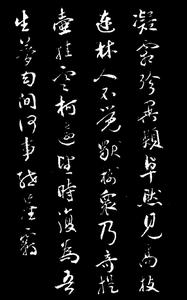 凝霜殄異類卓然見高枝
連林人不覺獨樹眾乃奇提
壺挂寒柯遠望時復為吾
生夢幻間何事紲塵羈